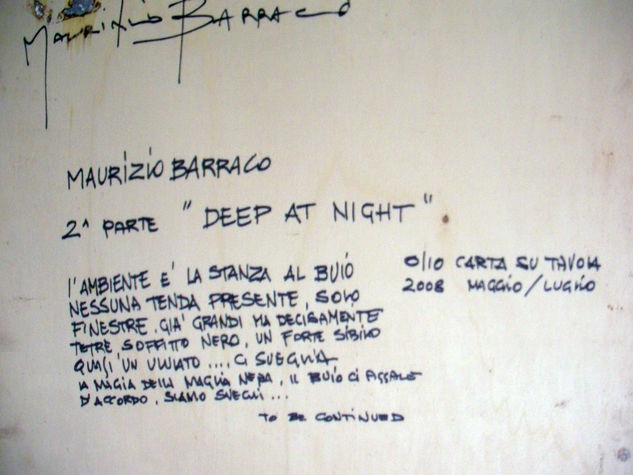 MAURIZIO BARRACO
MAURIZIO BARRACO
2^ PARTE "DEEP AT NIGHT".
l'AMBIENTE E' LA STANZA AL BUIO
NESSUNA TENDA PRESENTE, SOLO
FINESTRE, GIA' GRANDI MA DECISAMENTE
TETRE SOFFITTO NERO, UN FORTE SIBILO
QUASI UN ULULATO .... CI SVEGLIA
LA MAGIA DELLA MAGLIA NERA, IL BUIO CI ASSALE
D'ACCORDO, SIAMO SVEGLI ...
TO BE CONTINUED
OLIO CARTA SU TAVOLA
2008 MAGGIO/LUGLIO